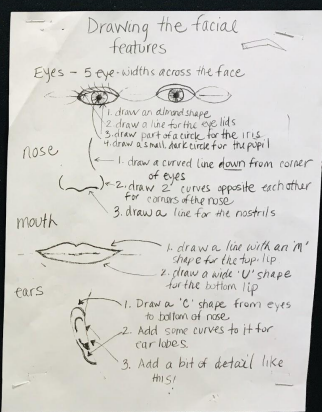 Drawing the facial
features
Eyes – 5 eye-widths across the face
1. draw an almond shape
2 draw a line for the eye lids
3. draw part of a circle for the iris
4. draw a small, dark circle for the pupil
nose
1. draw a curved line down from corner
of eyes
2. draw 2 curves opposite each other
for corners of the nose
3. draw a line for the nostrils
mouth
1. draw a line with an 'M'
shape for the top lip
2. draw a wide 'U' shape
for the bottom lip
ears
1. Draw a 'C' shape from eyes
to bottom of nose
2. Add some curves to it for
ear lobes
3. Add a bit of detail like
this!